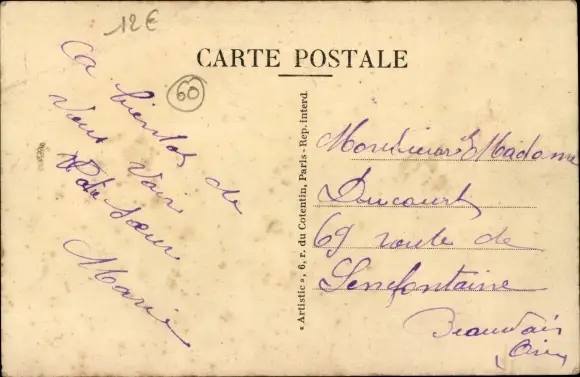 12€
CARTE POSTALE
60
ça bientôt de
vous voir
Votre sœur
Marie
« Artistic », 6, r. du Cotentin, Paris - Rep. interd.
Monsieur et Madame
Ducourt
69 route de
Senefontaine
Beauvais
Oise